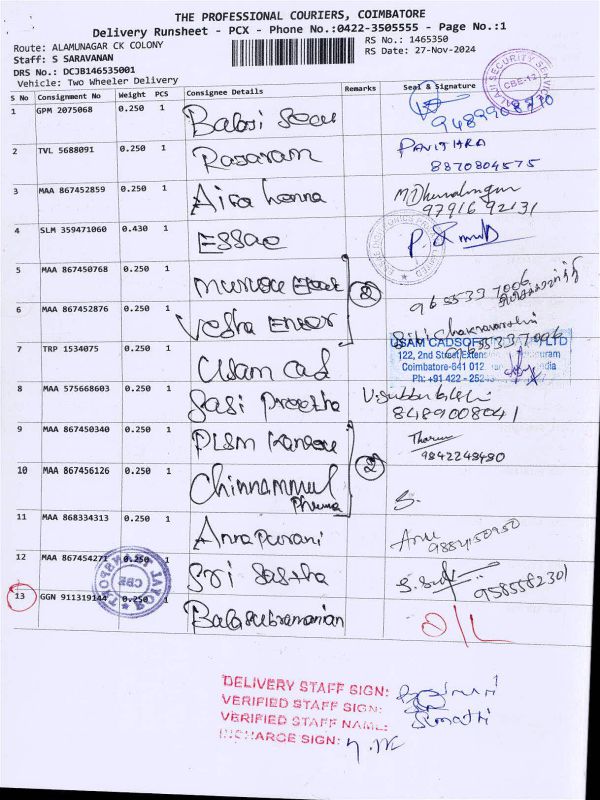 THE PROFESSIONAL COURIERS, COIMBATORE
Delivery Runsheet - PCX - Phone No.:0422-3505555 - Page No.:1
Route: ALAMUNAGAR CK COLONY
RS No.: 1465350
Staff: S SARAVANAN
RS Date: 27-Nov-2024
DRS No.: DCJB146535001
Vehicle: Two Wheeler Delivery
S No Consignment No Weight PCS Consignee Details Remarks Seal & Signature
1 GPM 2075068 0.250 1 Balaji
2 TVL 5688091 0.250 1 Rasaram PAVITHRA
8870804575
3 MAA 867452859 0.250 1 Aira henna
97916 92131
4 SLM 359471060 0.430 1 ESSAE
5 MAA 867450768 0.250 1 2
9655337006
6 MAA 867452876 0.250 1
7 TRP 1534075 0.250 1 Usam Cad
USAM CADSOFT LTD
122, 2nd Street
Coimbatore-641 012
Ph: +91 422 -
8 MAA 575668603 0.250 1 Sasi
8489008041
9 MAA 867450340 0.250 1 2 Tharun
9842248480
10 MAA 867456126 0.250 1 Chinnammul S.
11 MAA 868334313 0.250 1 Annapurani
12 MAA 867454271 0.250 1 Sri Sastha
9585582301
13 GGN 911319144 0.250 1 Balasubramanian O/L
DELIVERY STAFF SIGN:
VERIFIED STAFF SIGN:
VERIFIED STAFF NAME:
INCHARGE SIGN: